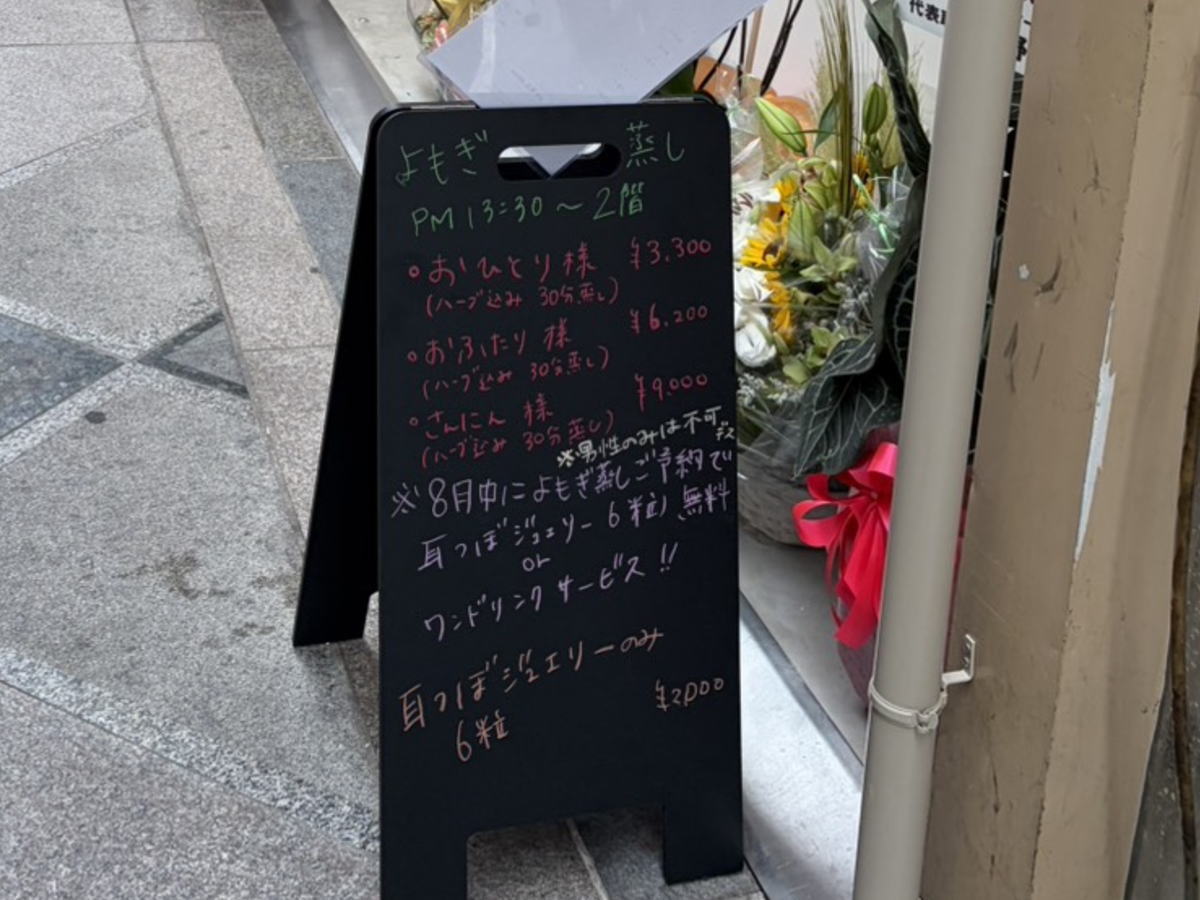 代表
よもぎ 蒸し
PM13:30～2階
・おひとり様 ¥3,300
(ハーブ込み 30分蒸し)
・おふたり様 ¥6,200
(ハーブ込み 30分蒸し)
・さんにん様 ¥9,000
(ハーブ込み 30分蒸し)
※男性のみは不可デス
※8月中によもぎ蒸しご予約で
耳つぼジュエリー6粒)無料
or
ワンドリンクサービス!!
耳つぼジュエリーのみ
6粒 ¥2,000